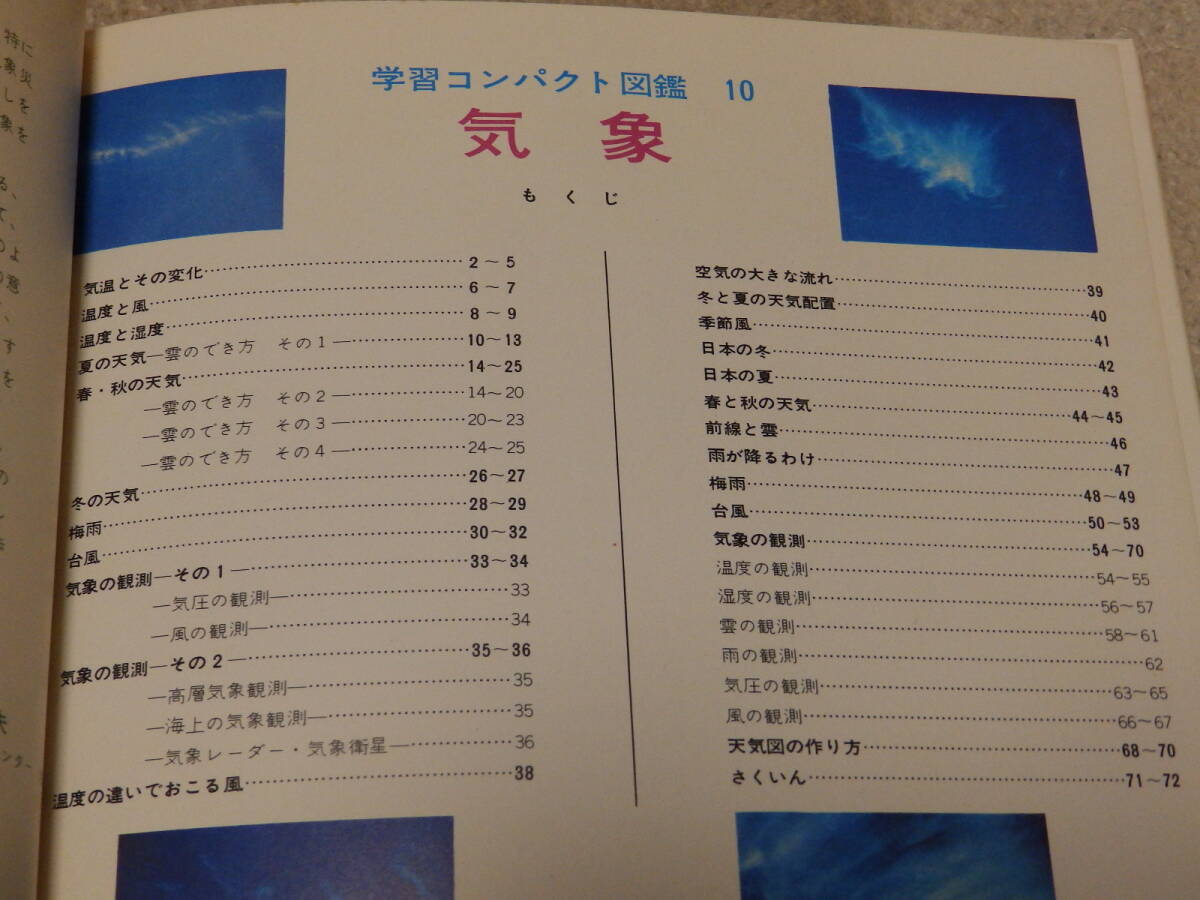 特に
象災
しを
象を
る、
て、
のよ
の意
、
す
を
の
ンター
学習コンパクト図鑑 10
気象
もくじ
気温とその変化……2～5
温度と風……6～7
温度と湿度……8～9
夏の天気―雲のでき方 その1―……10～13
春・秋の天気……14～25
―雲のでき方 その2―……14～20
―雲のでき方 その3―……20～23
―雲のでき方 その4―……24～25
冬の天気……26～27
梅雨……28～29
台風……30～32
気象の観測―その1―……33～34
―気圧の観測―……33
―風の観測―……34
気象の観測―その2―……35～36
―高層気象観測―……35
―海上の気象観測―……35
―気象レーダー・気象衛星―……36
温度の違いでおこる風……38
空気の大きな流れ……39
冬と夏の天気配置……40
季節風……41
日本の冬……42
日本の夏……43
春と秋の天気……44～45
前線と雲……46
雨が降るわけ……47
梅雨……48～49
台風……50～53
気象の観測……54～70
温度の観測……54～55
湿度の観測……56～57
雲の観測……58～61
雨の観測……62
気圧の観測……63～65
風の観測……66～67
天気図の作り方……68～70
さくいん……71～72